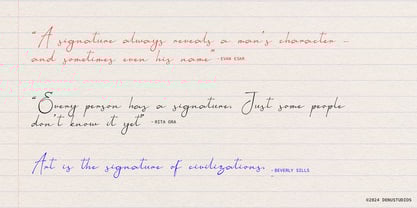 “A signature always reveals a man's character -
and sometimes even his name” -EVAN ESAR
“Every person has a signature. Just some people
don't know it yet” -RITA ORA
Art is the signature of civilizations. -BEVERLY SILLS
©2024 DENUSTUDIOS